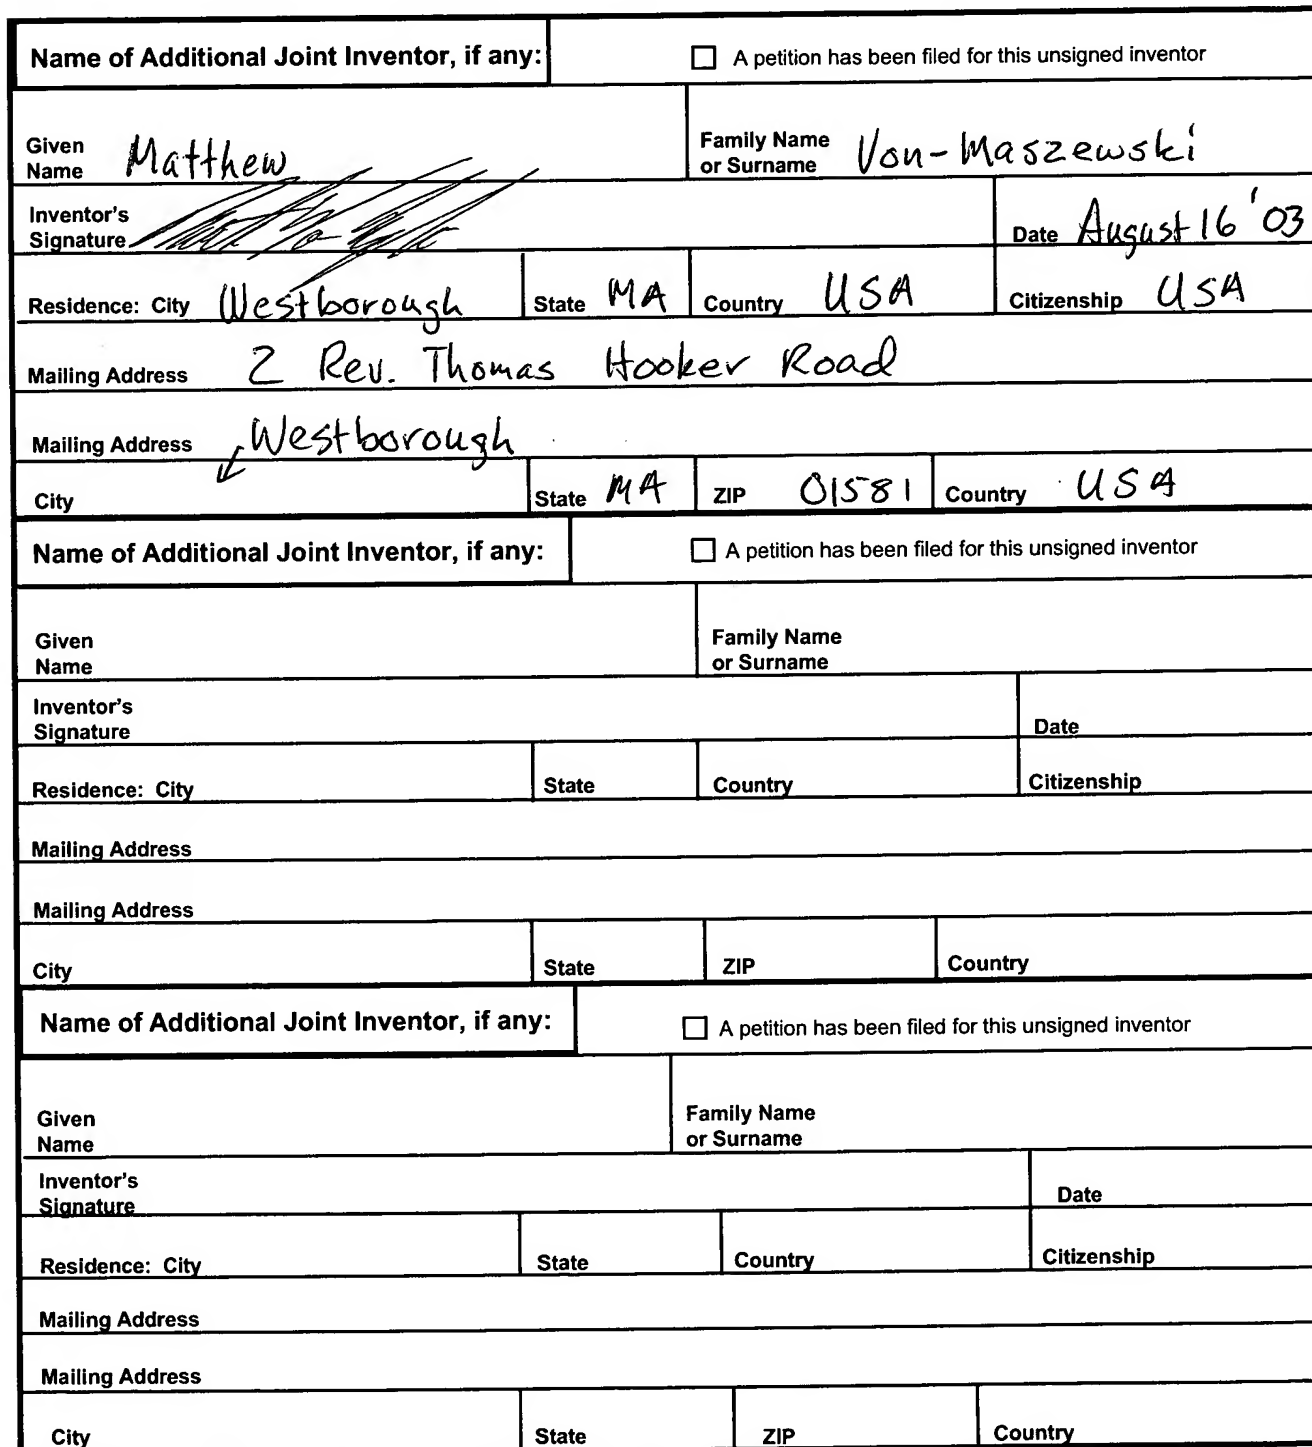 Name of Additional Joint Inventor, if any: ☐ A petition has been filed for this unsigned inventor
Given Name Matthew Family Name or Surname Von-Maszewski
Inventor's Signature Date August 16 '03
Residence: City Westborough State MA Country USA Citizenship USA
Mailing Address 2 Rev. Thomas Hooker Road
Mailing Address Westborough
City State MA ZIP 01581 Country USA
Name of Additional Joint Inventor, if any: ☐ A petition has been filed for this unsigned inventor
Given Name Family Name or Surname
Inventor's Signature Date
Residence: City State Country Citizenship
Mailing Address
Mailing Address
City State ZIP Country
Name of Additional Joint Inventor, if any: ☐ A petition has been filed for this unsigned inventor
Given Name Family Name or Surname
Inventor's Signature Date
Residence: City State Country Citizenship
Mailing Address
Mailing Address
City State ZIP Country